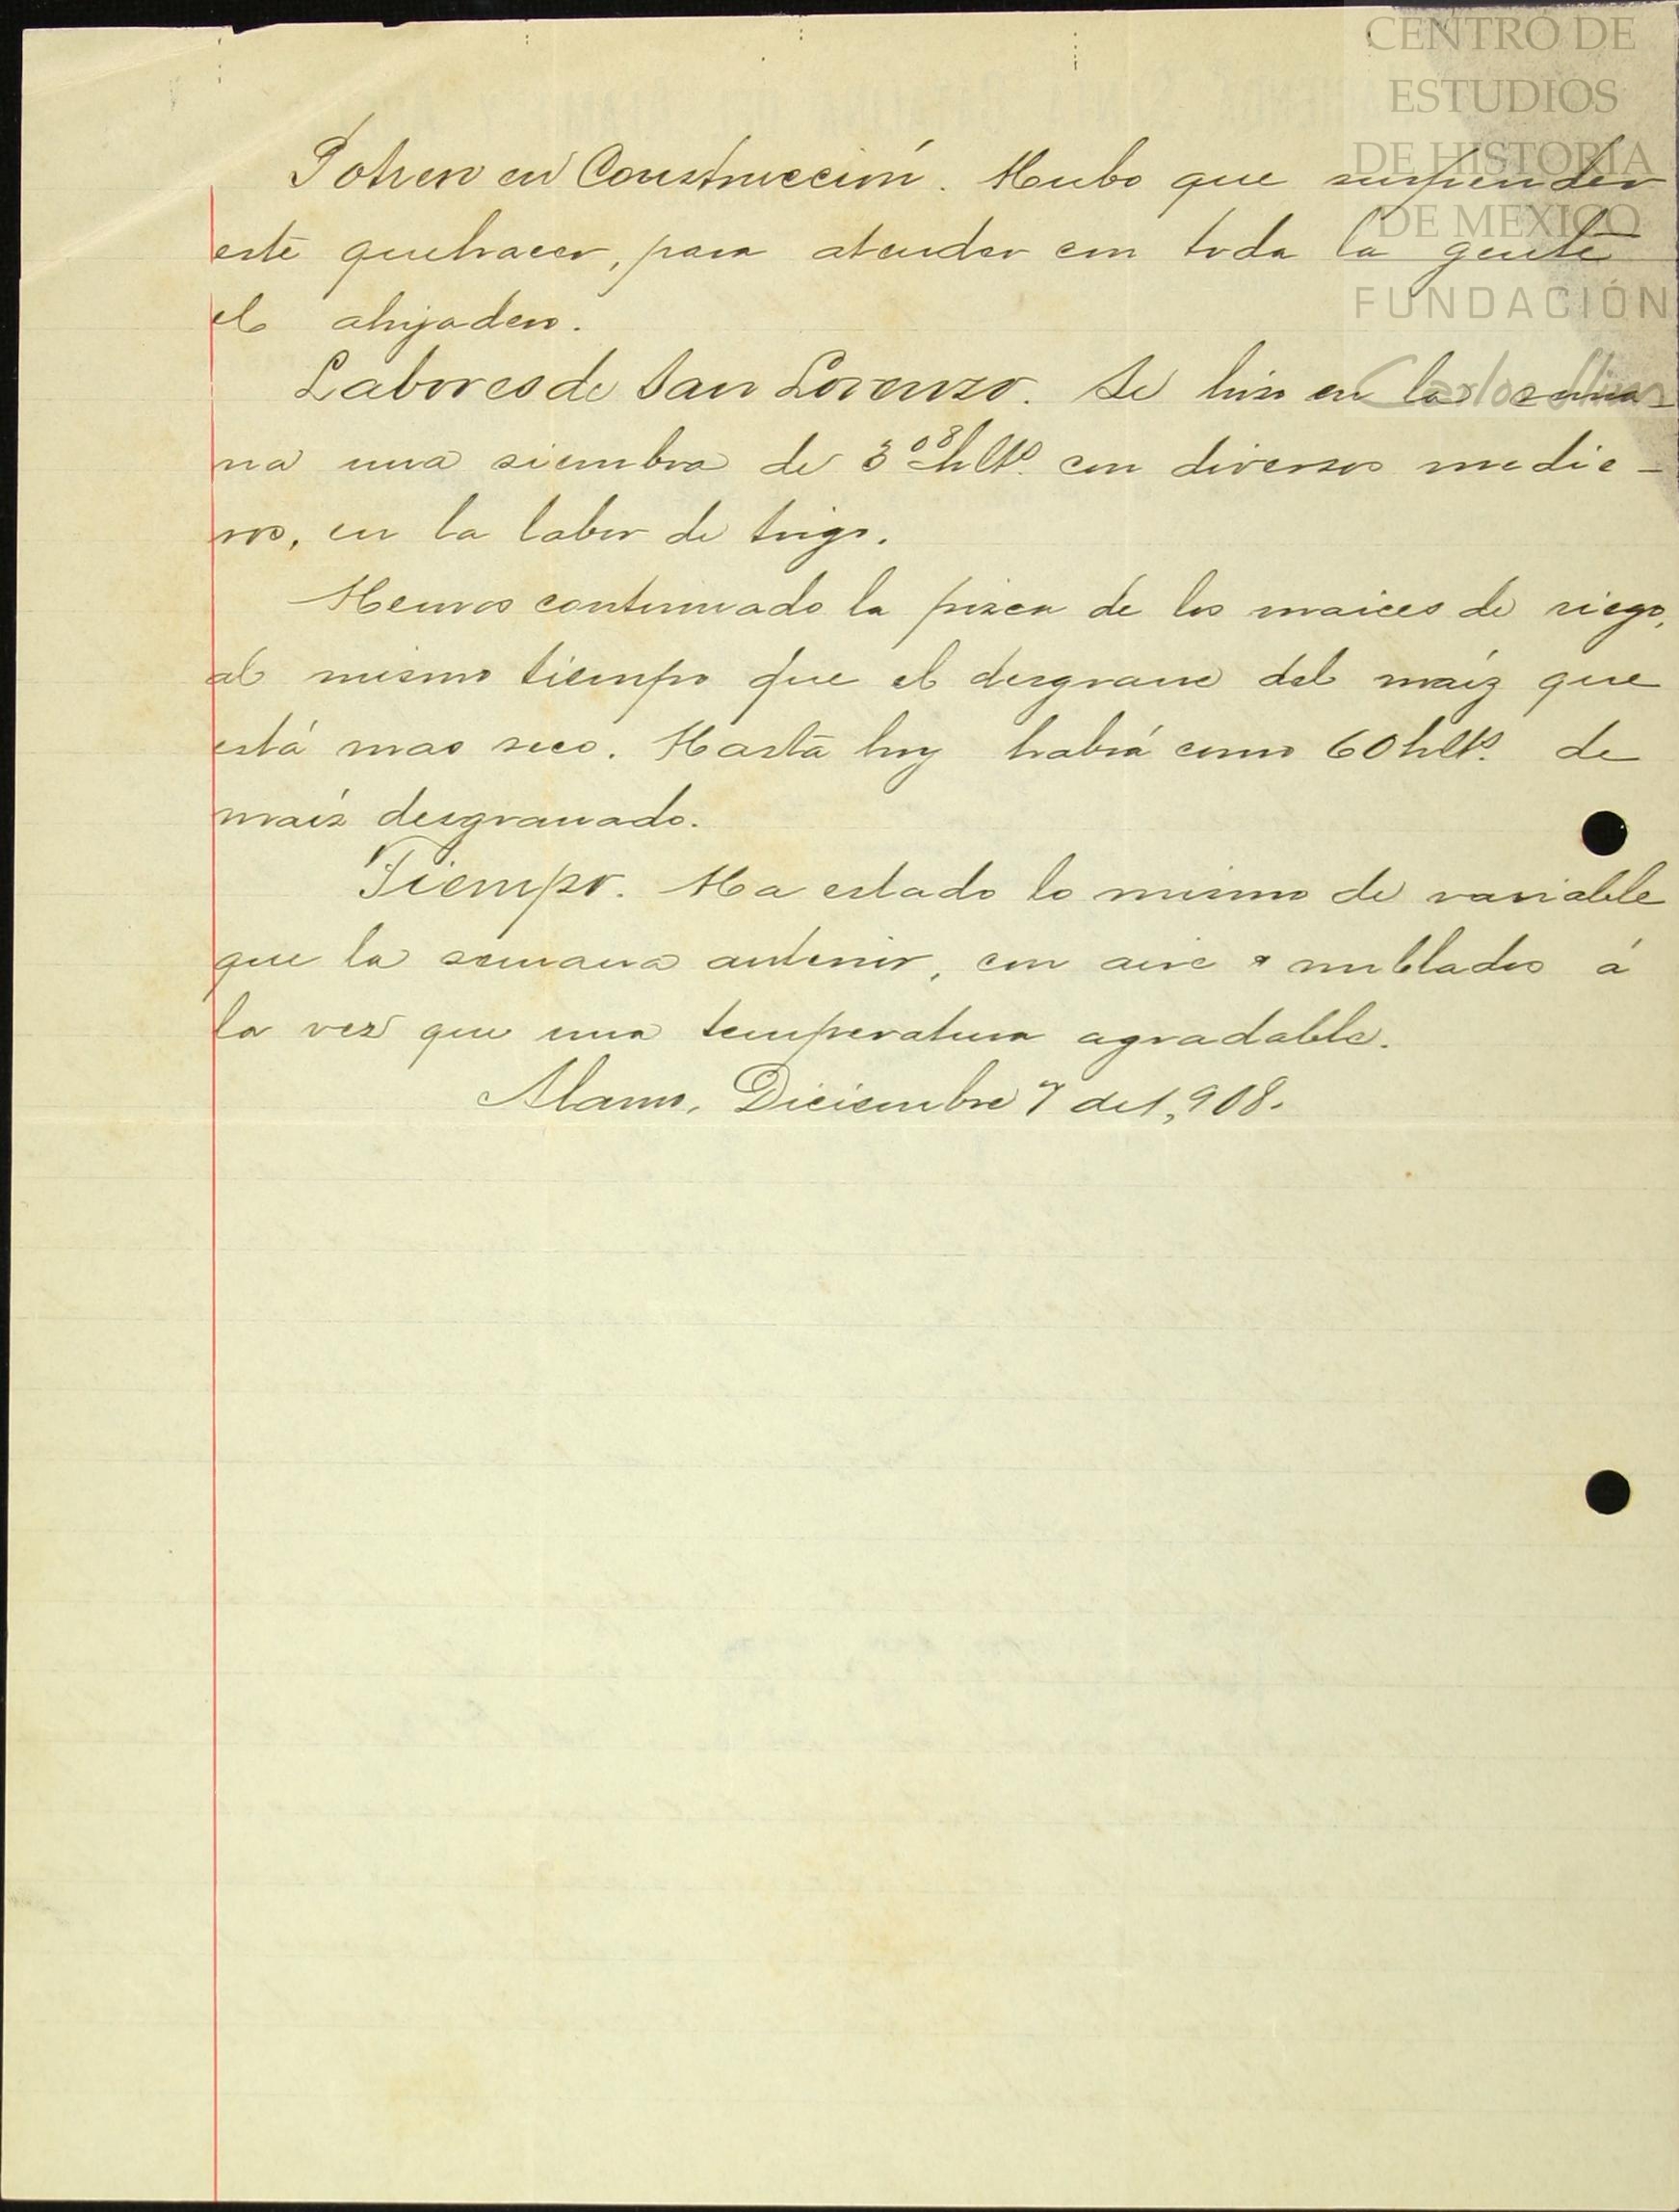 CENTRO DE
ESTUDIOS
DE HISTORIA
DE MEXICO
FUNDACIÓN
Carlos Slim
Potrero en Construcción. Hubo que suspender
este quehacer, para atender con toda la gente
el ahijadero.
Labores de San Lorenzo. Se hizo en la sema-
na una siembra de 3 08 hlts. con diversos medie-
ros, en la labor de trigo.
Hemos continuado la pizca de los maices de riego,
al mismo tiempo que el desgrane del maíz que
está mas seco. Hasta hoy habrá como 60 hlts. de
maíz desgranado.
Tiempo. Ha estado lo mismo de variable
que la semana anterior, con aire nublados á
la vez que una temperatura agradable.
Alamo, Diciembre 7 de 1,908.